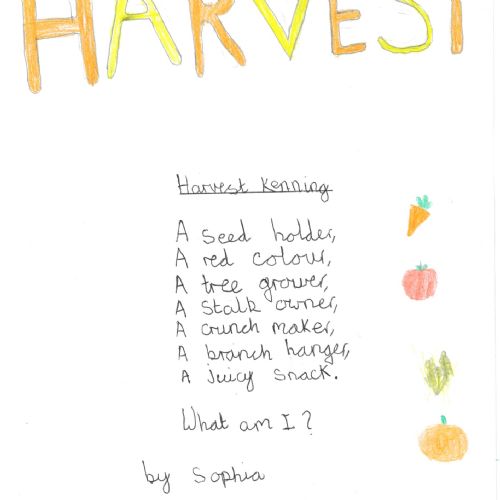 HARVEST
Harvest Kenning
A seed holder,
A red colour,
A tree grower,
A stalk owner,
A crunch maker,
A branch hanger,
A juicy snack.
What am I?
by Sophia